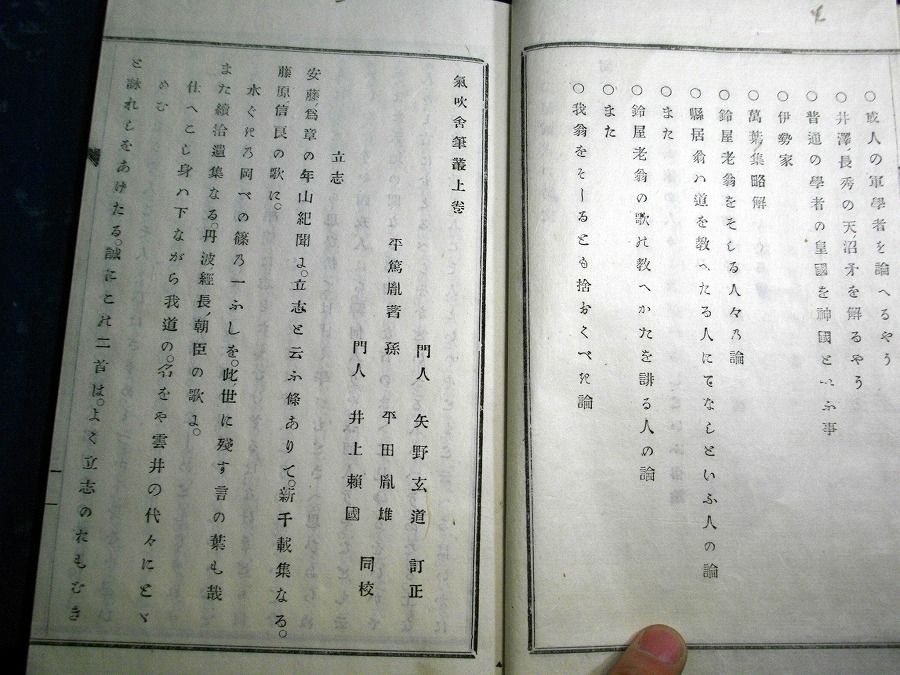 ○或人の軍學者を論へるやう
○井澤長秀の天沼矛を解るやう
○普通の學者の皇國を神國といふ事
○伊勢家
○萬葉集略解
○鈴屋老翁をそしる人々乃論
○縣居翁ハ道を教へたる人にてなしといふ人の論
○また
○鈴屋老翁の歌の教へかたを誹る人の論
○また
○我翁をそしるとも捨おくべき論
氣吹舍筆叢上卷
門人 矢野玄道 訂正
平篤胤著 孫 平田胤雄
門人 井上賴國 同校
立志
安藤爲章の年山紀聞よ。立志と云ふ條ありて。新千載集なる。
藤原信良の歌に。
水ぐきの岡べの篠乃一ふしを。此世に殘す言の葉も哉
また續拾遺集なる。丹波經長朝臣の歌よ。
仕へこし身ハ下ながら我道の。名をや雲井の代々にとゞ
めむ
と詠れしをあけたる。誠にこれ二首は。よく立志のおもむき